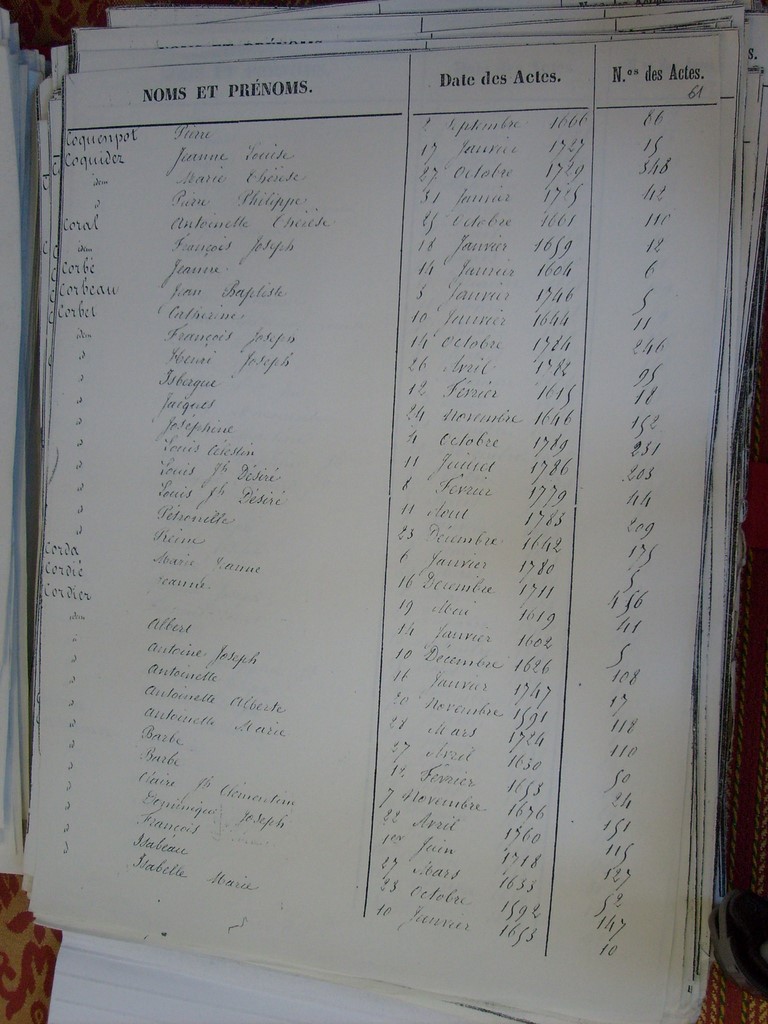 NOMS ET PRÉNOMS. Date des Actes. N.os des Actes.
61
Coquenpot Pierre 2 Septembre 1666 86
Coquidez Jeanne Louise 17 Janvier 1727 15
idem Marie Thérèse 27 Octobre 1729 348
d Pierre Philippe 31 Janvier 1725 42
Coral Antoinette Thérèse 25 Octobre 1661 110
idem François Joseph 18 Janvier 1659 12
Corbé Jeanne 14 Janvier 1604 6
Corbeau Jean Baptiste 3 Janvier 1746 5
Corbet Catherine 10 Janvier 1644 11
idem François Joseph 14 Octobre 1784 246
d Henri Joseph 26 Avril 1782 95
d Isbergue 12 Février 1615 18
d Jacques 24 Novembre 1646 152
d Joséphine 4 Octobre 1789 231
d Louis Célestin 11 Juillet 1786 203
d Louis Jh Désiré 8 Février 1779 44
d Louis Jh Désiré 11 Aout 1783 209
d Pétronille 23 Décembre 1642 175
d Reine 6 Janvier 1780 5
Corda Marie Jeanne 16 Decembre 1711 456
Cordié Jeanne 19 Mai 1619 41
Cordier 14 Janvier 1602 5
idem Albert 10 Décembre 1626 108
d Antoine Joseph 16 Janvier 1747 17
d Antoinette 20 Novembre 1591 118
d Antoinette Alberte 28 Mars 1724 110
d Antoinette Marie 27 Avril 1630 50
d Barbe 12 Février 1653 24
d Barbe 7 Novembre 1676 151
d Claire Jh Clémentine 22 Avril 1760 115
d Dominique Joseph 1er Juin 1718 127
d François 27 Mars 1633 52
d Isabeau 23 Octobre 1592 147
d Isabelle Marie 10 Janvier 1653 10